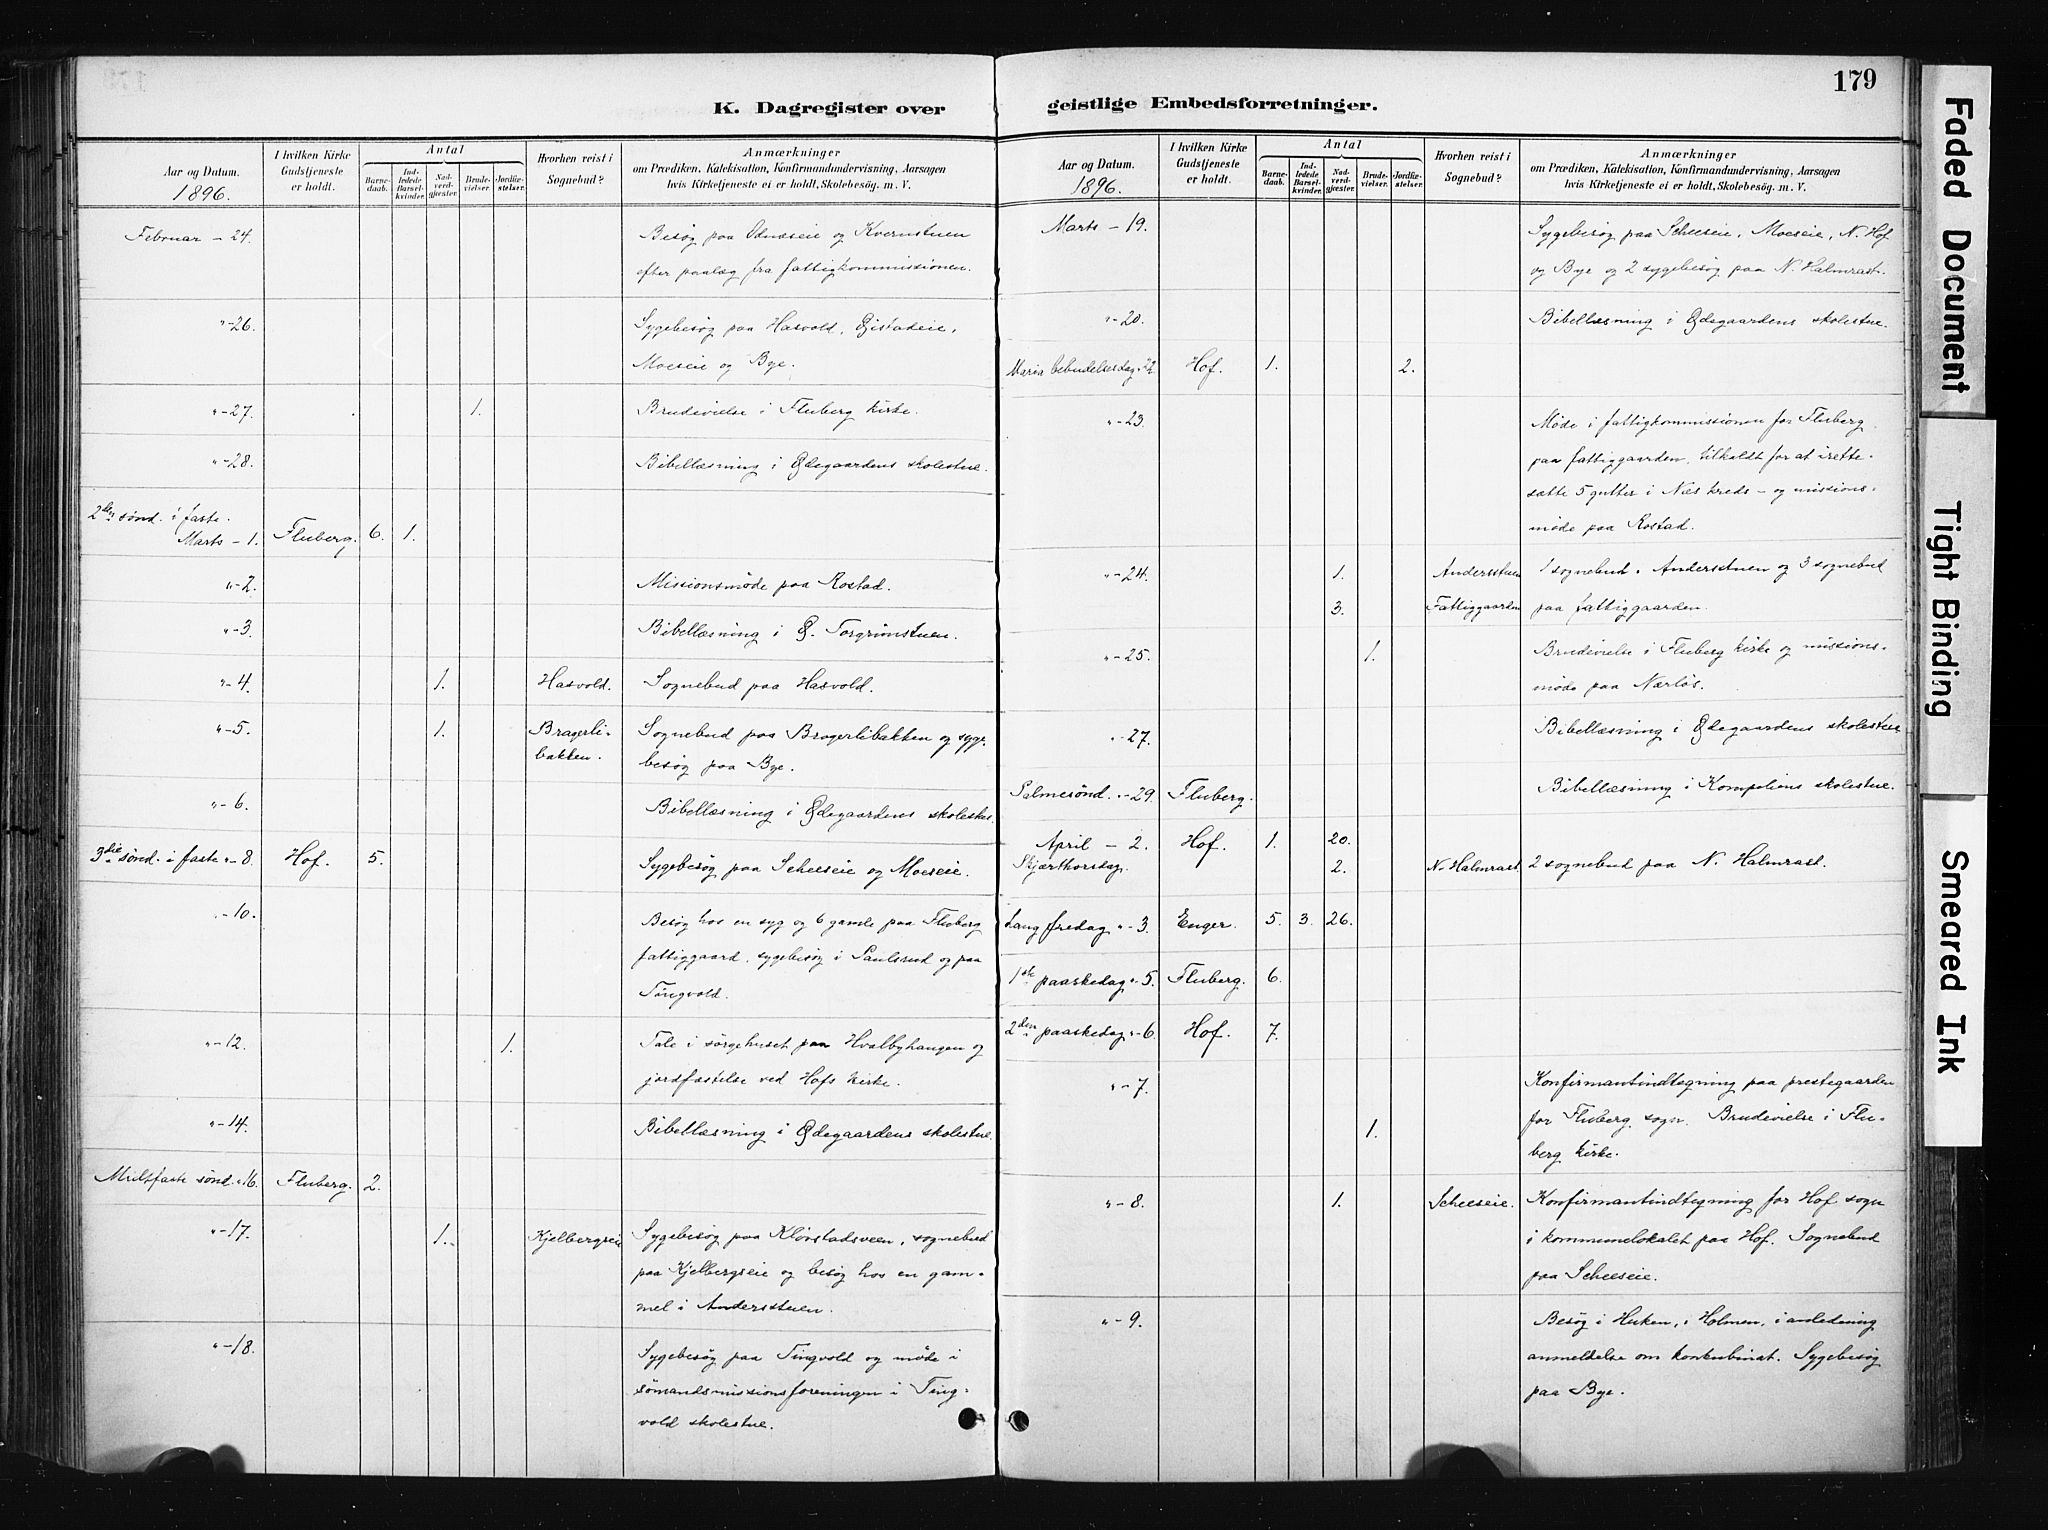 K. Dagregister over
Aar og Datum.
1896.
I hvilken Kirke
Gudstjeneste
er holdt.
Antal
Barne-
daab.
Ind-
ledede
Barsel-
kvinder.
Nad-
verd-
gjester.
Brude-
vielser.
Jordfæ-
stelser.
Hvorhen reist i
Sognebud?
Anmærkninger
om Prædiken, Katekisation, Konfirmandundervisning, Aarsagen
hvis Kirketjeneste ei er holdt, Skolebesøg. m. V.
Februar - 24. Besøg paa Odnæseie og Kvernstuen
efter paalæg fra fattigkommissionen.
"-26. Sygebesøg paa Hasvold, Gjistadeie,
Moeseie og Bye.
"-27. 1. Brudevielse i Fluberg kirke.
"-28. Bibellæsning i Ødegaardens skolestue.
2den sønd. i faste.
Marts - 1. Fluberg. 6. 1.
"-2. Missionsmøde paa Rostad.
"-3. Bibellæsning i Ø. Torgrimstuen.
"-4. 1. Hasvold. Sognebud paa Hasvold.
"-5. 1. Bragerli- Sognebud paa Bragerlibakken og syge-
bakken. besøg paa Bye.
"-6. Bibellæsning i Ødegaardens skolestue.
3die sønd. i faste "-8. Hof. 5. Sygebesøg paa Scheeseie og Moeseie.
"-10. Besøg hos en syg og 6 gamle paa Fluberg
fattiggaard, sygebesøg i Paulsrud og paa
Tingvold.
"-12. 1. Tale i sørgehuset paa Hvalbyhaugen og
jordfæstelse ved Hofs kirke.
"-14. Bibellæsning i Ødegaardens skolestue.
Midtfaste sønd. "16. Fluberg. 2.
"-17. 1. Kjelbergseie Sygebesøg paa Klørstadsveen, sognebud
paa Kjelbergseie og besøg hos en gam-
mel i Andersstuen.
"-18. Sygebesøg paa Tingvold og møde i
sømandsmissionsforeningen i Ting-
vold skolestue.
179
geistlige Embedsforretninger.
Aar og Datum.
1896.
I hvilken Kirke
Gudstjeneste
er holdt.
Antal
Barne-
daab.
Ind-
ledede
Barsel-
kvinder.
Nad-
verd-
gjester.
Brude-
vielser.
Jordfæ-
stelser.
Hvorhen reist i
Sognebud?
Anmærkninger
om Prædiken, Katekisation, Konfirmandundervisning, Aarsagen
hvis Kirketjeneste ei er holdt, Skolebesøg. m. V.
Marts - 19. Sygebesøg paa Scheeseie, Moeseie, N. Hof
og Bye og 2 sygebesøg paa N. Halmrast.
"-20. Bibellæsning i Ødegaardens skolestue.
Maria bebudelsesdag "22 Hof. 1. 2.
"-23. Møde i fattigkommissionen for Fluberg
paa fattiggaarden, tilkaldt for at irette-
sætte 5 gutter i Næs kreds - og missions-
møde paa Rostad.
"-24. 1. Andersstuen 1 sognebud i Andersstuen og 3 sognebud
3. Fattiggaarden paa fattiggaarden.
"-25. 1. Brudevielse i Fluberg kirke og missions-
møde paa Nærløs.
"-27. Bibellæsning i Ødegaardens skolestue
Palmesønd. "-29. Fluberg. Bibellæsning i Kompeliens skolestue.
April - 2. Hof. 1. 20.
Skjærthorsdag. 2. N. Halmrast. 2 sognebud paa N. Halmrast.
Langfredag "-3. Enger. 5. 3. 26.
1ste paaskedag "-5. Fluberg. 6.
2den paaskedag "-6. Hof. 7.
"-7. Konfirmantindtegning paa prestegaarden
for Fluberg sogn. Brudevielse i Flu-
1.
berg kirke.
"-8. 1. Scheeseie. Konfirmantindtegning for Hof sogn
i kommunelokalet paa Hof. Sognebud
paa Scheeseie.
"-9. Besøg i Huken, i Holmen, i anledning
anmeldelse om konkubinat. Sygebesøg
paa Bye.
Faded Document
Tight Binding
Smeared Ink